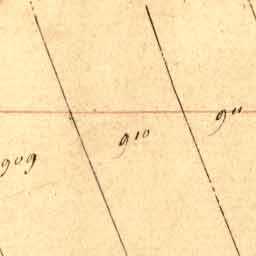 909
910
911